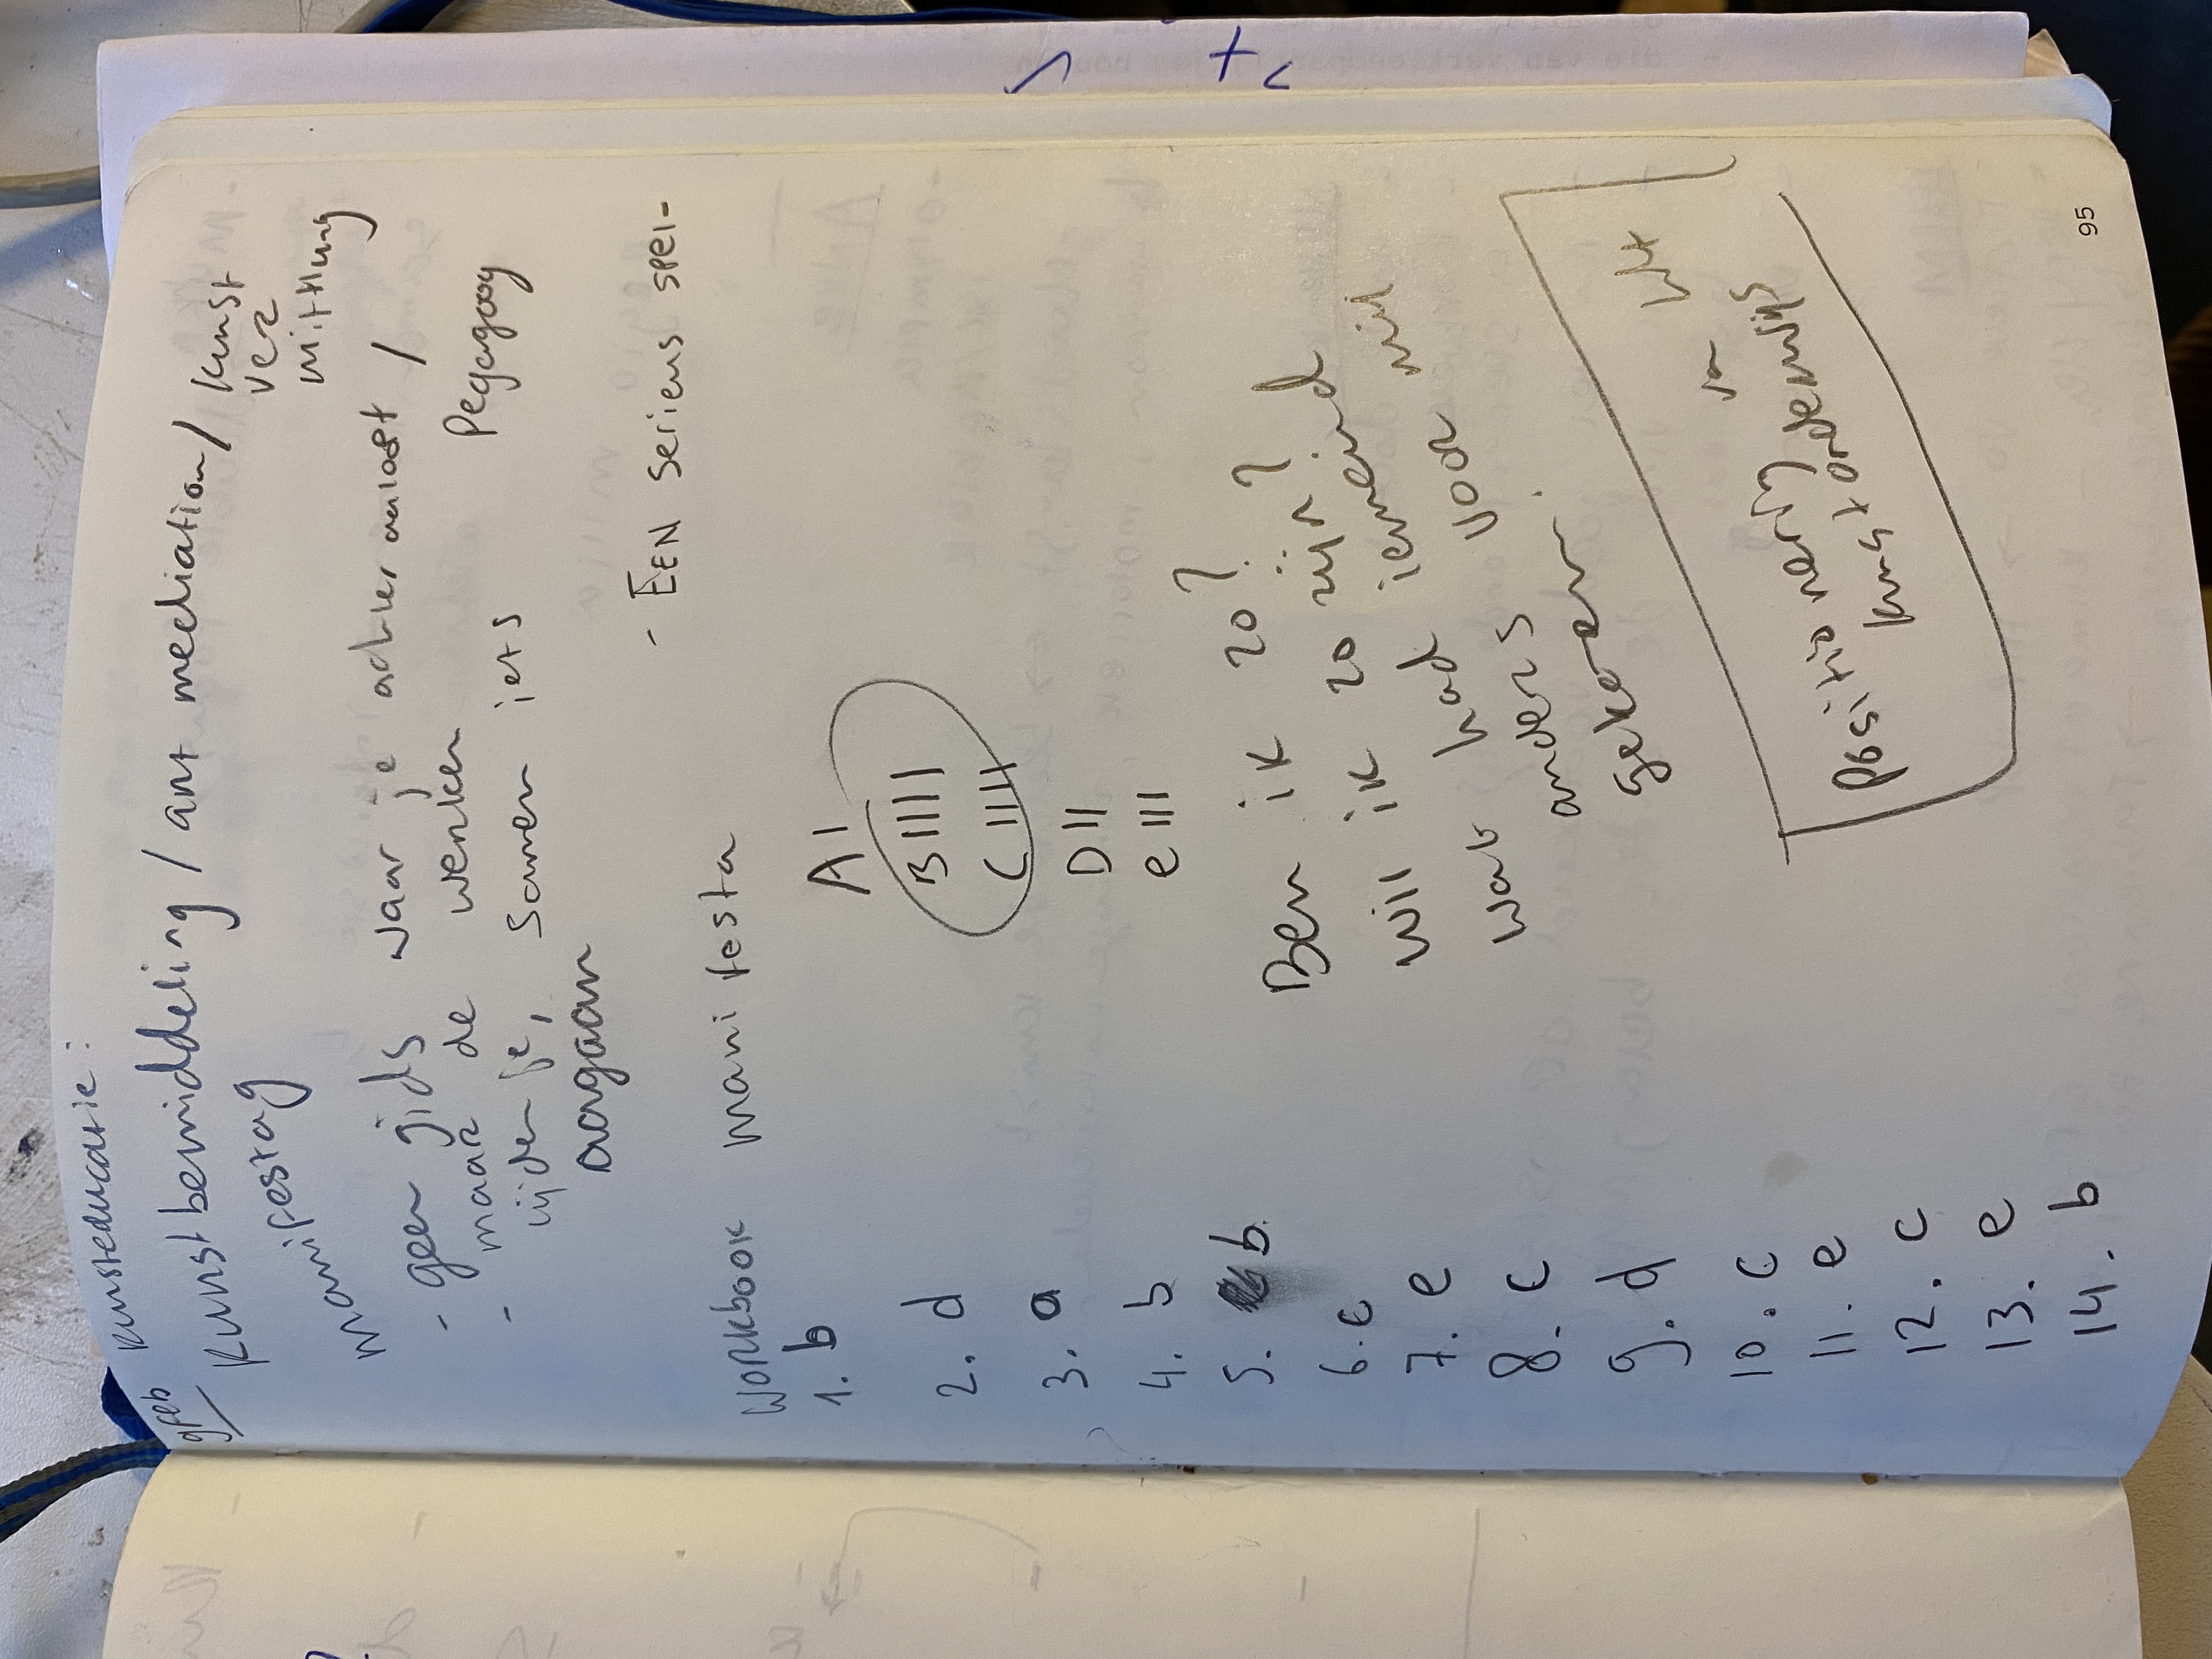 9 feb
kunsteducatie:
Kunstbemiddeling / art mediation / kunst
vermittlung
manifestag
- geen gids waar je achter aanloopt /
- maak de werken Pegagoog
samen iets
aangaan
- EEN serieus spel -
Workbook manifesta
1. b
2. d
3. a
4. b
5. b
6. c
7. e
8. c
9. d
10. c
11. e
12. c
13. e
14. b
A I
B IIII
C IIII
D II
e III
Ben ik zo?
Will ik zo zijn?
Wab had iemand
anders voor mij
gekozen.
Positionering
kunstonderwijs
95